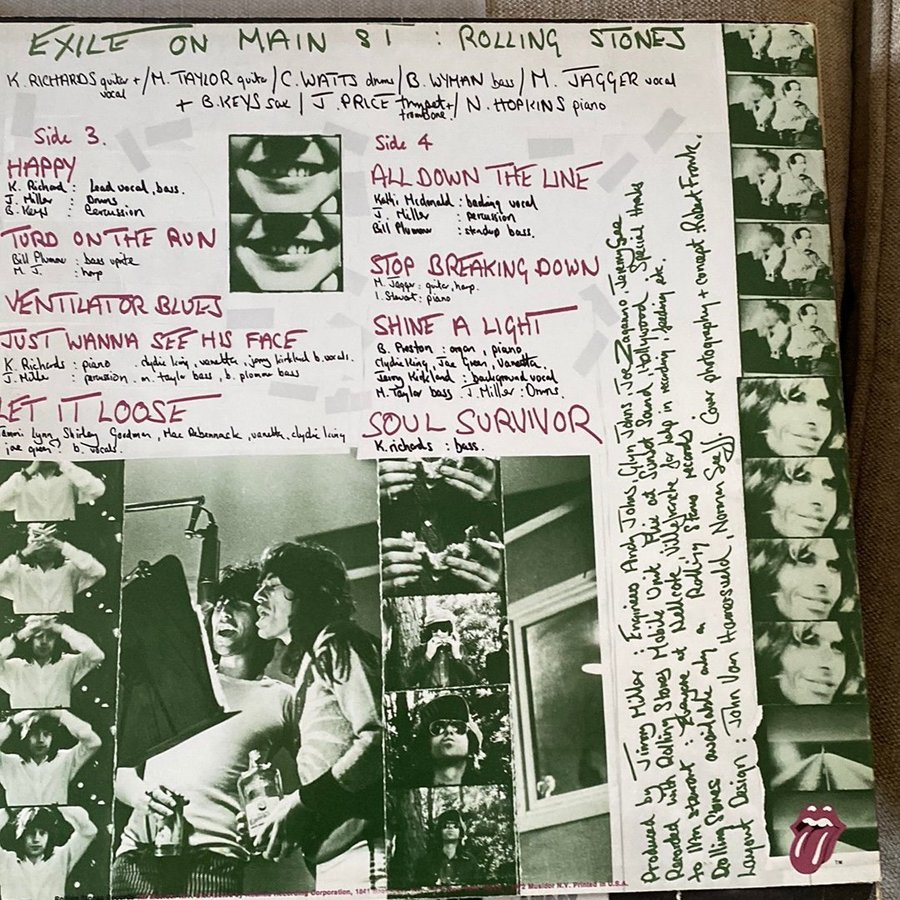 EXILE ON MAIN ST : ROLLING STONES
K. RICHARDS guitar + vocal / M. TAYLOR guitar / C. WATTS drums / B. WYMAN bass / M. JAGGER vocal
+ B. KEYS sax / J. PRICE trumpet + trombone / N. HOPKINS piano
Side 3.
HAPPY
K. Richard : Lead vocal, bass.
J. Miller : Drums
B. Keys : Percussion
TURD ON THE RUN
Bill Plummer : bass uprite
M. J. : harp
VENTILATOR BLUES
JUST WANNA SEE HIS FACE
K. Richards : piano . clydie king, vanetta, jerry kirkland b. vocals.
J. Miller : percussion. m. taylor bass, b. plummer bass
LET IT LOOSE
Tammi Lynn, Shirley Goodman, Mac Rebennack, vanetta, clydie king
joe green : b. vocals.
Side 4
ALL DOWN THE LINE
Kathi Mcdonald : backing vocal
J. Miller : percussion
Bill Plummer : standup bass.
STOP BREAKING DOWN
M. Jagger : guitar, harp.
I. Stewart : piano
SHINE A LIGHT
B. Preston : organ, piano
Clydie King, Joe Green, Vanetta,
Jerry Kirkland : background vocal
M. Taylor bass J. Miller : Drums.
SOUL SURVIVOR
K. richards : bass.
Produced by Jimmy Miller : Engineers Andy Johns, Glyn Johns, Joe Zagarino, Jeremy Gee
Recorded with Rolling Stones Mobile Unit. Mix at Sunset Sound, Hollywood. Special thanks
to Ian stewart : Everyone at Nellcote Villefranche for help in recording, feeding etc.
Rolling Stones available only on Rolling Stones records
Layout Design : John Van Hamersveld, Norman Seeff. Cover photography + concept : Robert Frank.
Recording Corporation, 1841
Musidor N.V. Printed in U.S.A.
TM